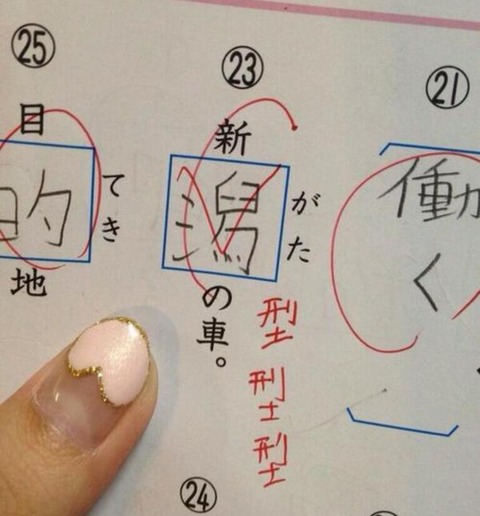 ㉑
働く
㉓
新潟の車。
がた
型
型
型
㉔
㉕
目的地
てき